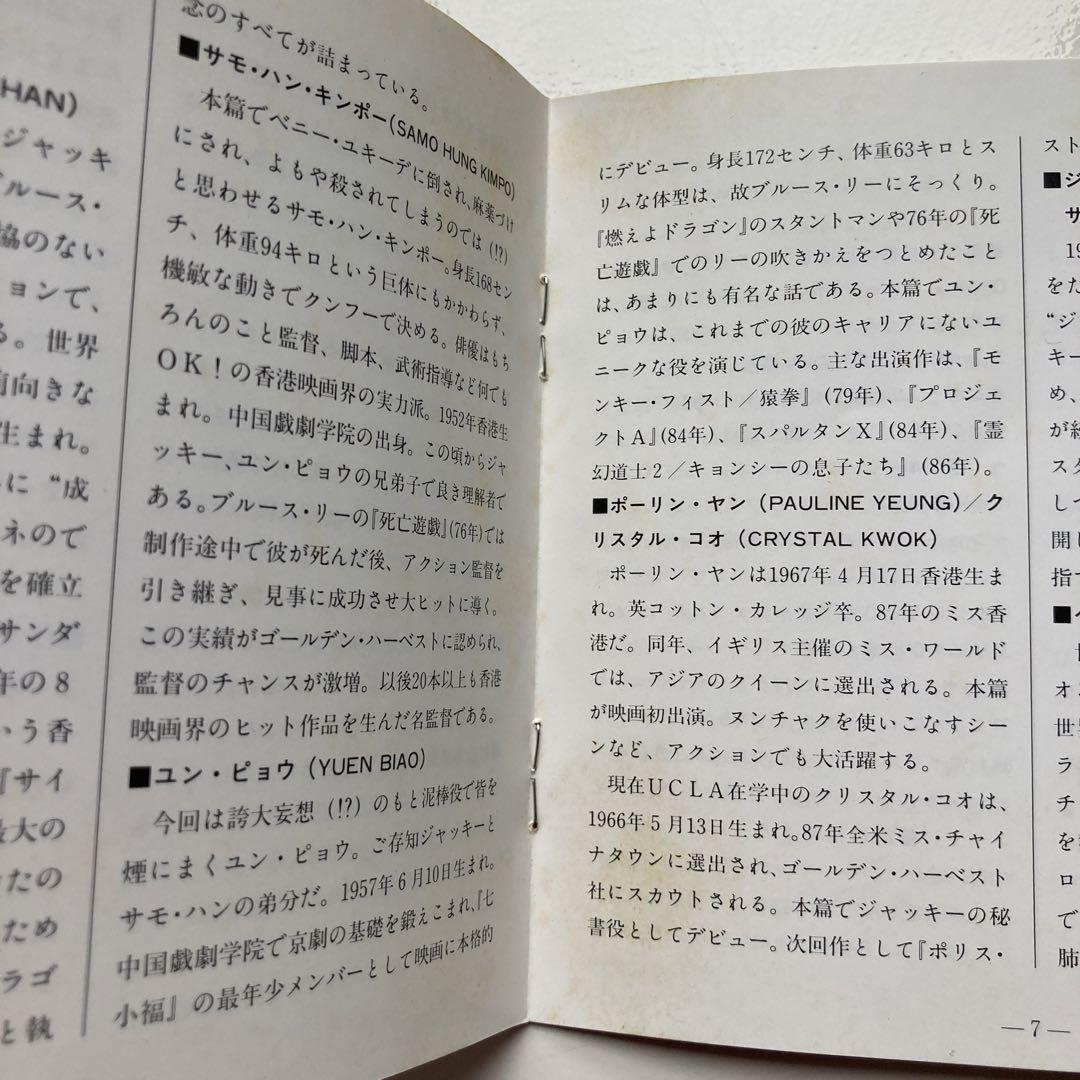 HAN)
ジャッキ
ブルース・
協のない
ョンで、
る。世界
前向きな
生まれ。
に“成
ネので
を確立
サンダ
年の8
いう香
『サイ
最大の
ったの
ため
ラゴ
と執
念のすべてが詰まっている。
■サモ・ハン・キンポー(SAMO HUNG KIMPO)
本篇でベニー・ユキーデに倒され、麻薬づけ
にされ、よもや殺されてしまうのでは(!?)
と思わせるサモ・ハン・キンポー。身長168セン
チ、体重94キロという巨体にもかかわらず、
機敏な動きでクンフーで決める。俳優はもち
ろんのこと監督、脚本、武術指導など何でも
OK!の香港映画界の実力派。1952年香港生
まれ。中国戯劇学院の出身。この頃からジャ
ッキー、ユン・ピョウの兄弟子で良き理解者で
ある。ブルース・リーの『死亡遊戯』(76年)では
制作途中で彼が死んだ後、アクション監督を
引き継ぎ、見事に成功させ大ヒットに導く。
この実績がゴールデン・ハーベストに認められ、
監督のチャンスが激増。以後20本以上も香港
映画界のヒット作品を生んだ名監督である。
■ユン・ピョウ(YUEN BIAO)
今回は誇大妄想(!?)のもと泥棒役で皆を
煙にまくユン・ピョウ。ご存知ジャッキーと
サモ・ハンの弟分だ。1957年6月10日生まれ。
中国戯劇学院で京劇の基礎を鍛えこまれ、『七
小福』の最年少メンバーとして映画に本格的
にデビュー。身長172センチ、体重63キロとス
リムな体型は、故ブルース・リーにそっくり。
『燃えよドラゴン』のスタントマンや76年の『死
亡遊戯』でのリーの吹きかえをつとめたこと
は、あまりにも有名な話である。本篇でユン・
ピョウは、これまでの彼のキャリアにないユ
ニークな役を演じている。主な出演作は、『モ
ンキー・フィスト/猿拳』(79年)、『プロジェ
クトA』(84年)、『スパルタンX』(84年)、『霊
幻道士2/キョンシーの息子たち』(86年)。
■ポーリン・ヤン(PAULINE YEUNG)/ク
リスタル・コオ(CRYSTAL KWOK)
ポーリン・ヤンは1967年4月17日香港生ま
れ。英コットン・カレッジ卒。87年のミス香
港だ。同年、イギリス主催のミス・ワールド
では、アジアのクイーンに選出される。本篇
が映画初出演。ヌンチャクを使いこなすシー
ンなど、アクションでも大活躍する。
現在UCLA在学中のクリスタル・コオは、
1966年5月13日生まれ。87年全米ミス・チャイ
ナタウンに選出され、ゴールデン・ハーベスト
社にスカウトされる。本篇でジャッキーの秘
書役としてデビュー。次回作として『ポリス・
スト
■ジ
サ
19
をた
“ジ
キー
め、
が終
スタ
して
開し
指す
■
オ
世界
ラ
チ
を
ロ
で
肺
—7—